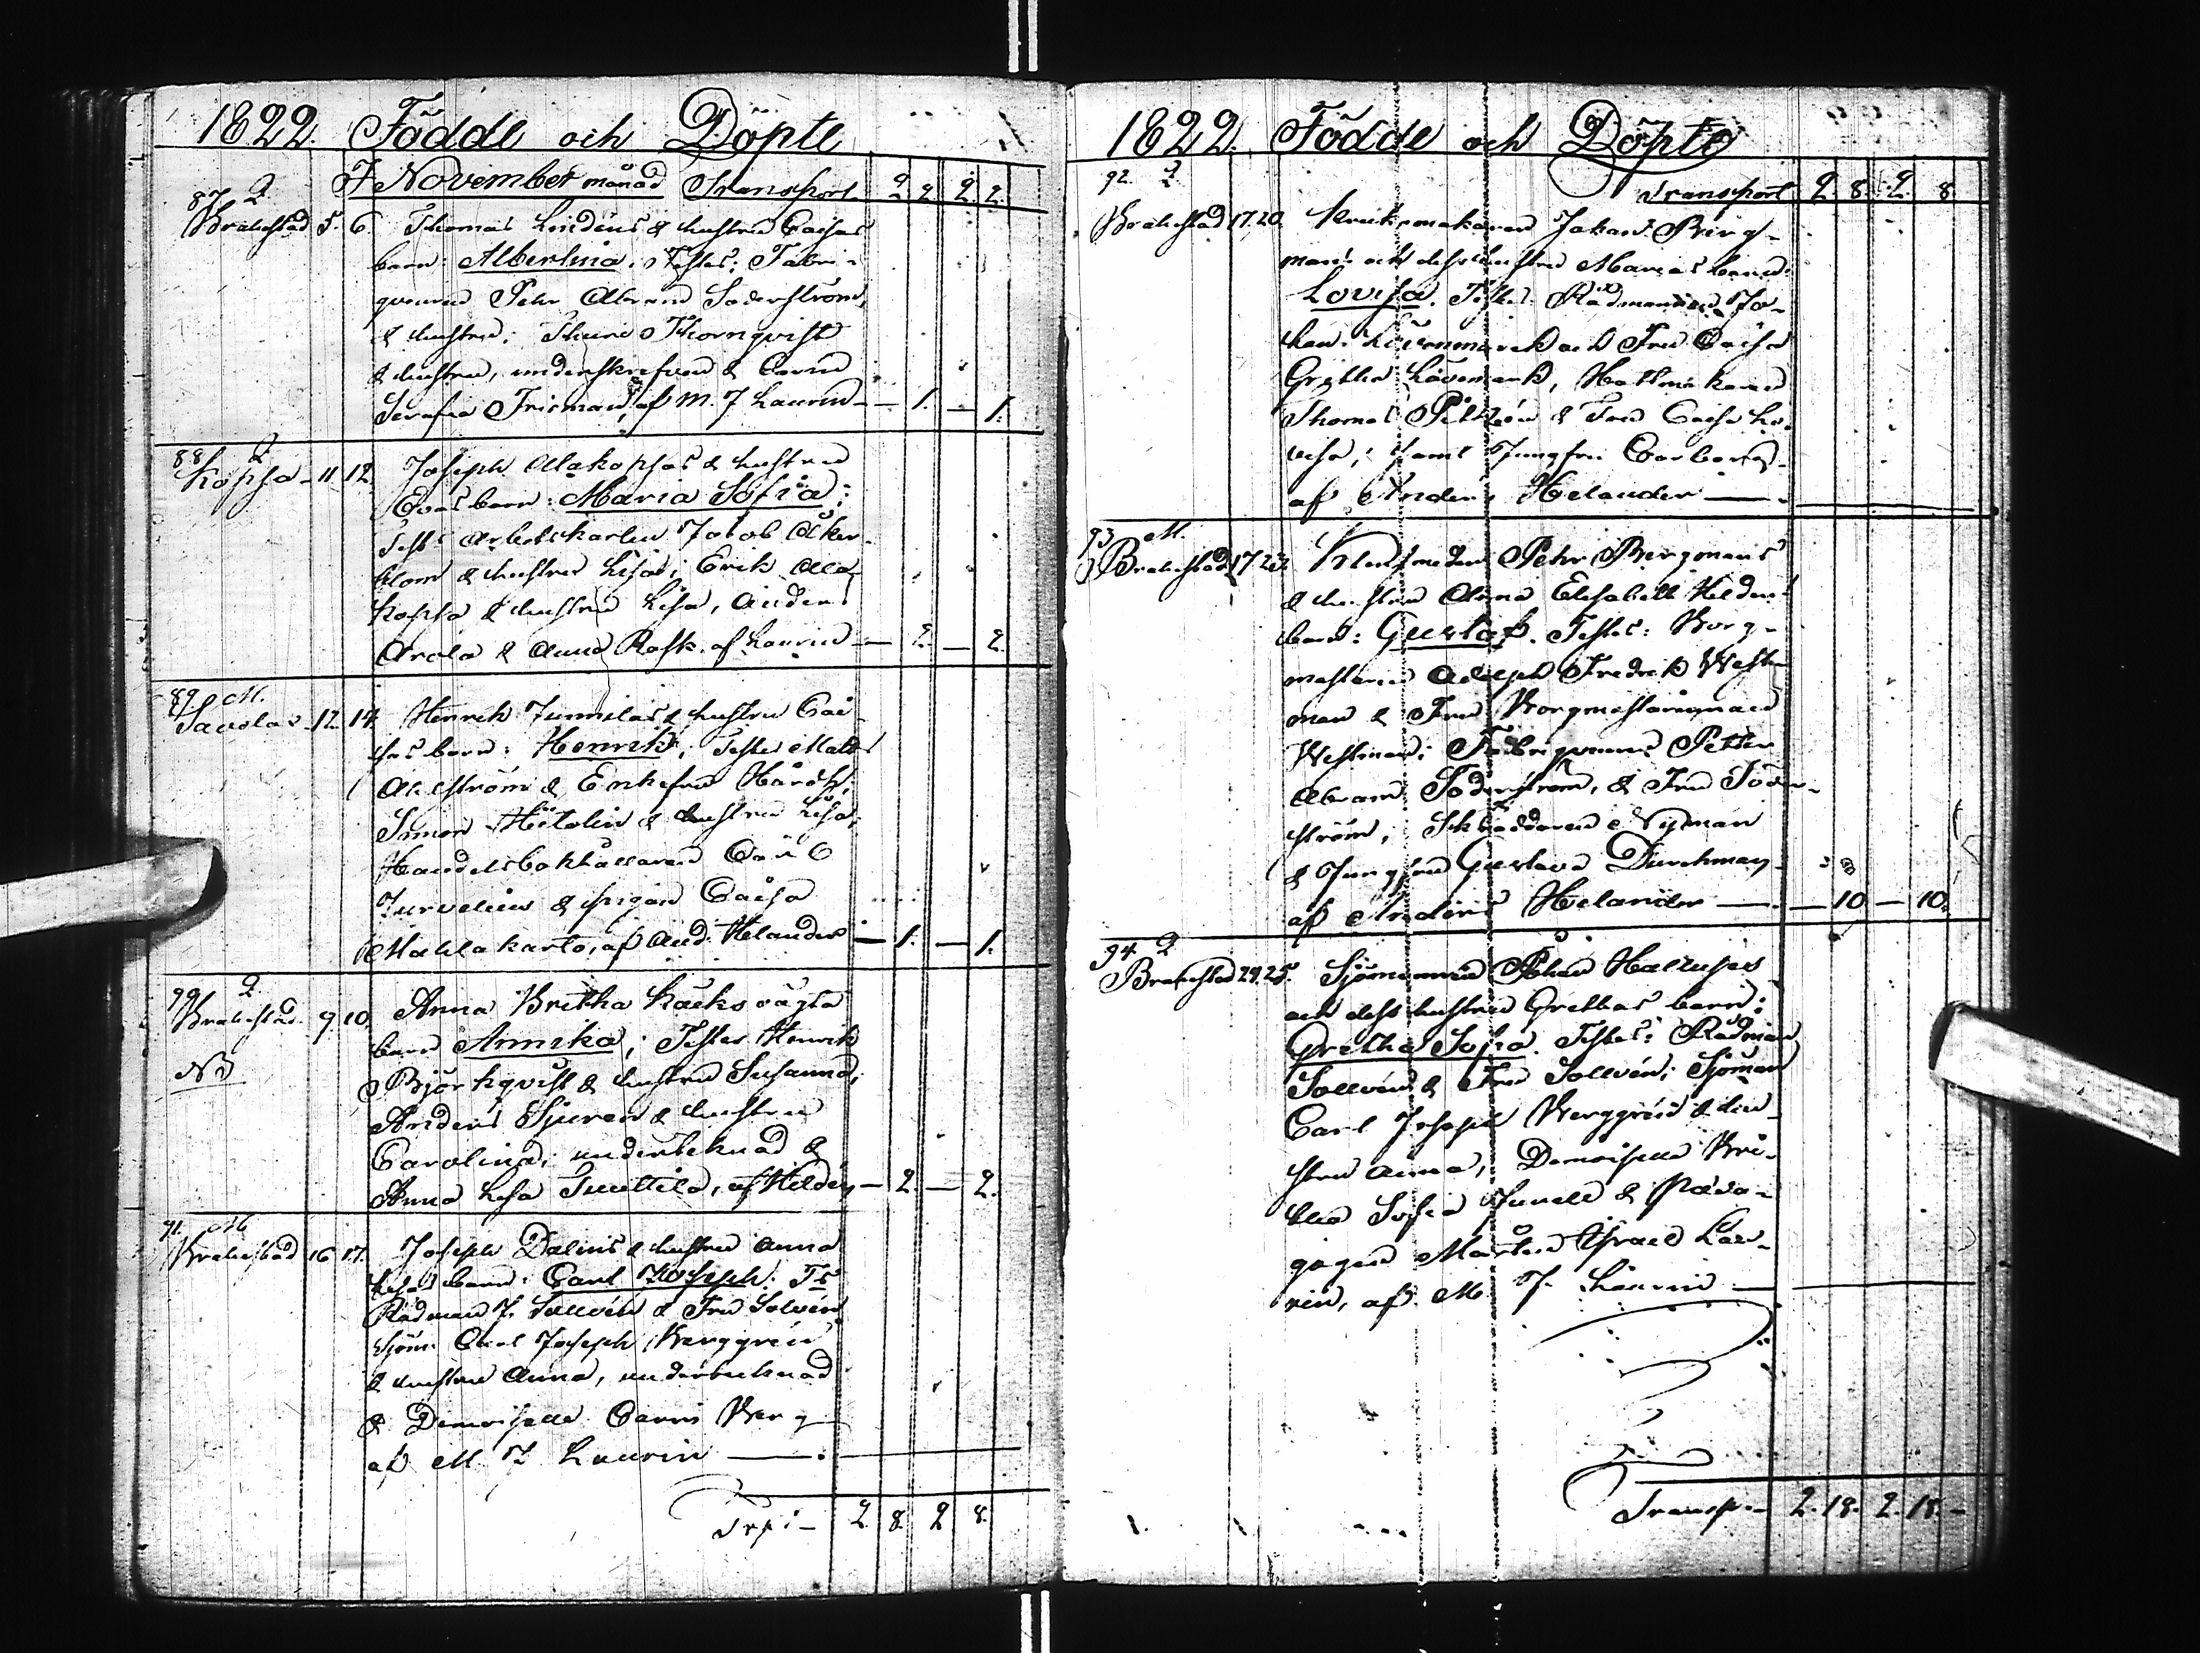 1822. Födde och Döpte
I November månad Transport 2 2 2 2.
87 Q
Brahestad 5. 6. Thomas Lindens & hustru Caisas
barn: Albertina. Testes: Fabri-
queuren Pehr Abram Söderström,
& hustru; Thure Thornqvist
& hustru, underskrefven & Carin
Serafia Frieman, af M. J Laurin — 1. — 1.
88 Q
Kopsa 11 12. Joseph Alakopsas & hustrun
Evas barn: Maria Sofia;
Test: Arbetskarlen Jacob Åker-
blom & hustru Lisa; Erik Ala
Kopsa & hustru Lisa, Anders
Arola & Anna Rask. af Laurin — 2. — 2.
89 M.
Savolax 12. 14. Henrik Junnilas & hustru Cai
sas barn: Henrik; Testes Matts
Ahlström & Enkefru
Simon & hustru Lisa;
Handelsbokhållaren Carl G
Jurvelius & pigan Caisa
Mahlakarto, af And: Helander — 1. — 1.
90 Q
Brahestad. 9 10. Anna Britha
barn Annika; Testes Henrik
Björkqvist & hustru Susanna;
Anders Sjuren & hustru
Carolina; undertecknad &
Anna Lisa af Helder — 2. — 2.
NB
91. M
Brahestad 16 17. Joseph Dalins & hustru Anna
Lisas barn: Carl Joseph. Ts
Rådman J. Sollvén & Fru Solvén,
Sjöm: Carl Joseph Berggrén
& hustru Anna, undertecknad
& Demoiselle Carin Berg
af M. J. Laurin —
Trp:- 2. 8. 2 8.
1822. Födde och Döpte
Transport 2. 8. 2. 8.
92. Q
Brahestad 17. 20. Krukomakaren Johan Berg-
mans och dess hustru Marias barn:
Lovisa. Test: Rådmannen Jo-
han Lövenmarck och Fru Caisa
Gretha Lövemark, Hattmakaren
Thomas & Fru Caisa Lo-
visa; samt Jungfru Barbara
af Anders Helander —
93 M.
Brahestad 17. 22. Klensmeden Pehr Bergmans
& hustru Anna Elisabeth
barn: Gustaf. Testes: Borg-
mästaren Adolph Fredrik West-
man & Fru Borgmästarinnan
Westman; Fabriqueuren Petter
Abram Söderström, & Fru Söder-
ström; Skräddaren Nyman
& Jungfru Gustava Durchman,
af Anders Helander — 10 — 10.
94 Q
Brahestad 24. 25. Sjömannen Johan
och dess hustru Grethas barn:
Gretha Sofia. Testes: Rådman
Sollvén & Fru Sollvén; Sjöman
Carl Joseph Berggrén & hu-
stru Anna, Demoiselle Bri-
tha Sofia Junell & Päda-
gogen Mårten Israel Lau-
rin, af M J. Laurin —
Transp:- 2. 18. 2. 18.-